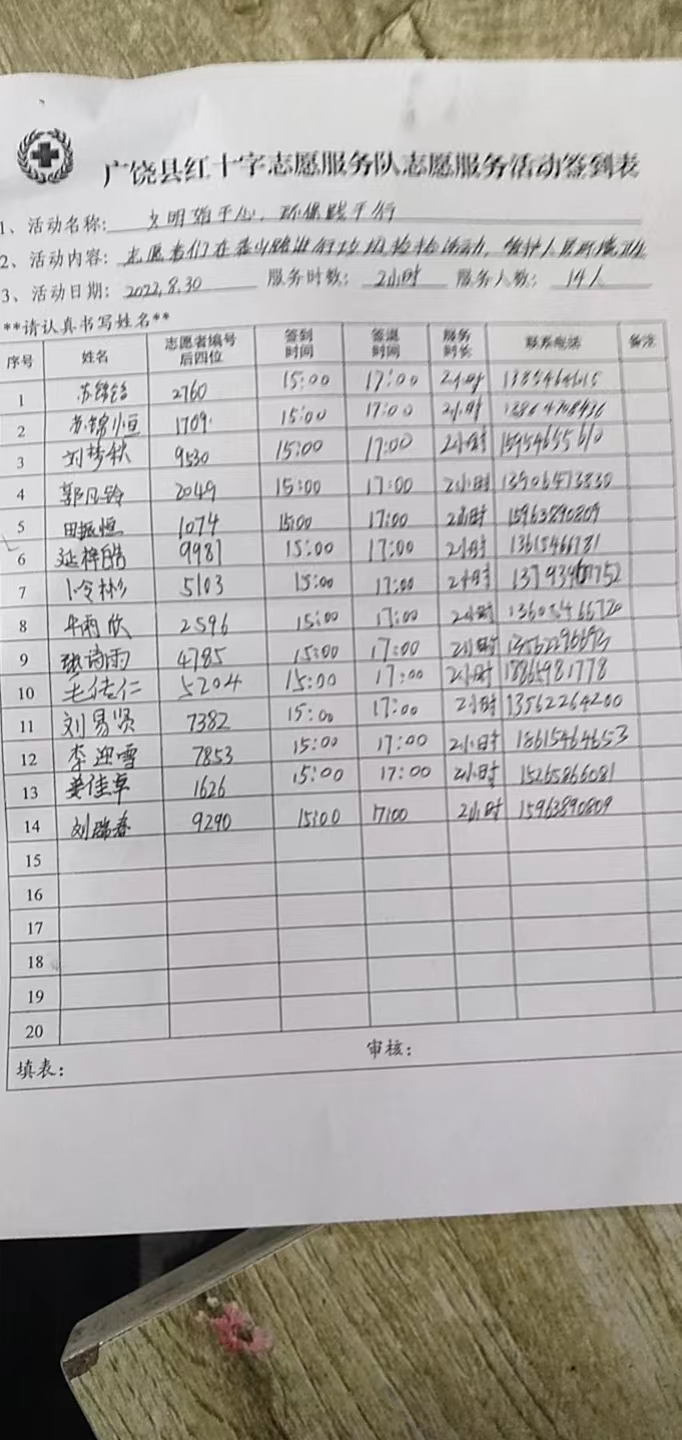 广饶县红十字志愿服务队志愿服务活动签到表
1、活动名称: 文明始于心,环保践于行
2、活动内容: 志愿者们在 路进行垃圾捡拾活动,维护 环境卫生
3、活动日期: 2022.8.30 服务时数: 2小时 服务人数: 14人
**请认真书写姓名**
序号 姓名 志愿者编号后四位 签到时间 签退时间 服务时长 联系电话 备注
1 苏锦 2760 15:00 17:00 2小时
2 苏锦恒 1709 15:00 17:00 2小时
3 刘梦秋 9530 15:00 17:00 2小时 15954655610
4 郭凡玲 2049 15:00 17:00 2小时 13906473830
5 田振恒 1074 15:00 17:00 2小时 15963890809
6 延梓皓 9981 15:00 17:00 2小时
7 5103 15:00 17:00 2小时
8 牛雨欣 2596 15:00 17:00 2小时
9 张诗雨 4785 15:00 17:00 2小时
10 佳仁 5204 15:00 17:00 2小时
11 刘易贤 7382 15:00 17:00 2小时 13562264200
12 李迎雪 7853 15:00 17:00 2小时 18615464653
13 姜佳卓 1626 15:00 17:00 2小时 15265866081
14 刘瑞春 9290 15:00 17:00 2小时 15963890809
15
16
17
18
19
20
填表: 审核: